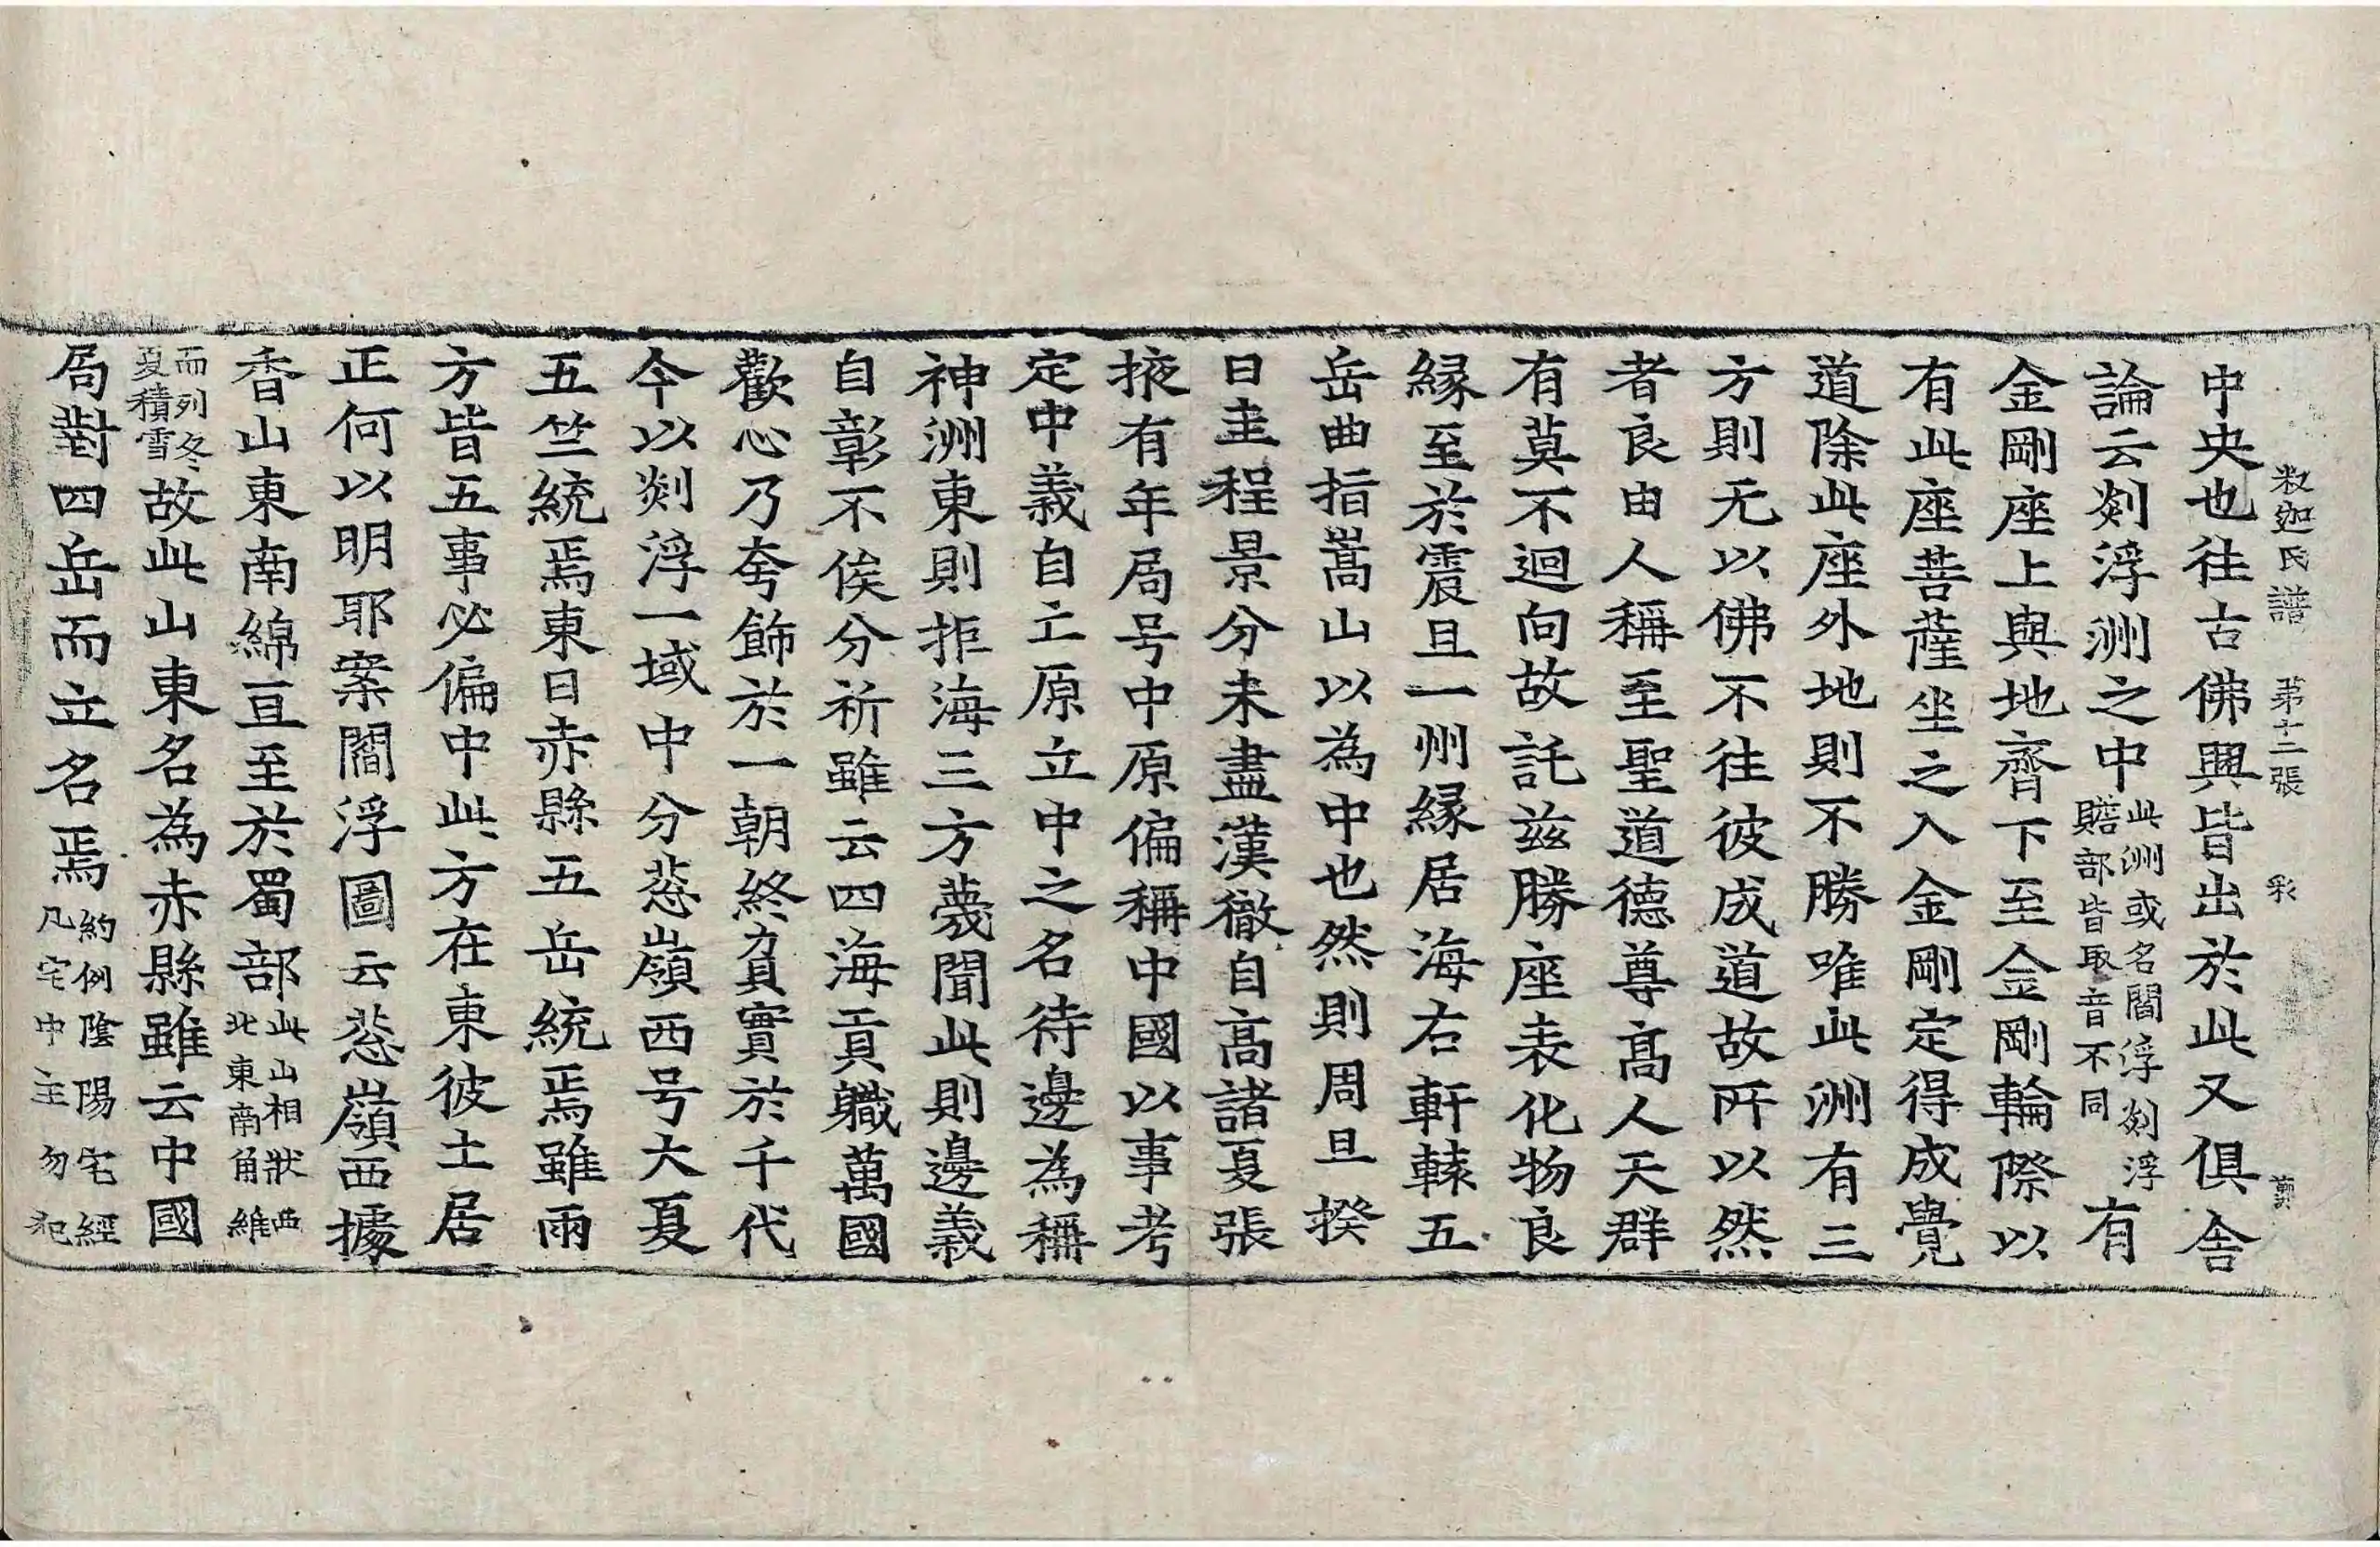 釈迦氏譜 第十二張 彩
中央也往古佛興皆出於此又俱舍
論云剡浮洲之中此洲或名閻浮剡浮贍部皆取音不同有
金剛座上與地齊下至金剛輪際以
有此座菩薩坐之入金剛定得成覺
道除此座外地則不勝唯此洲有三
方則无以佛不往彼成道故所以然
者良由人稱至聖道德尊高人天群
有莫不迴向故託兹勝座表化物良
緣至於震旦一州緣居海右軒轅五
岳曲指嵩山以為中也然則周旦揆
日圭程景分未盡漢徹自高諸夏張
掖有年局号中原偏稱中國以事考
定中義自亡原立中之名待邊為稱
神洲東則拒海三方蔑聞此則邊義
自彰不俟分祈雖云四海貢職萬國
歡心乃夸飾於一朝終負實於千代
今以剡浮一域中分葱嶺西号大夏
五竺統焉東曰赤縣五岳統焉雖兩
方皆五事必偏中此方在東彼土居
正何以明耶案閻浮圖云葱嶺西據
香山東南綿亘至於蜀部此山相狀西北東南角維
而列冬夏積雪故此山東名為赤縣雖云中國
局對四岳而立名焉約例陰陽宅經凡宅中主勿犯